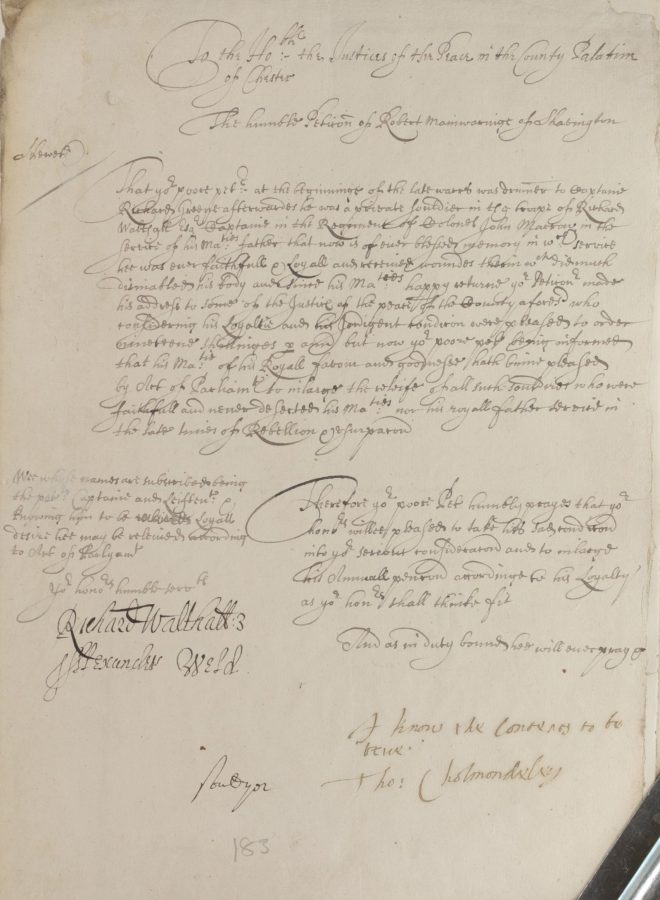 To the Ho:ble the Justices of the Peace in the County Palatine
of Chester
The humble Peticon of Robert Mainwaringe of Shavington
Sheweth
That yor poore petr: at the beginninge of the late warrs was drumer to Captaine
Richard Greene afterwardes he was a private souldier in the troupe of Richard
Walthall Esqr Captaine in the Regiment of Colonel John Marrow in the
service of his Maties father that now is of ever blessed memory in wch service
hee was ever faithfull & Loyall and received woundes therin wch diemuch
dismabled his body and since his Maties happy returne yor Peticonr made
his address to some of the Justices of the peace of the County aforesd who
considering his Loyaltie and his Indigent condicon were pleased to order
nineteene shillinges p ann but now yor poore petr being informed
that his Matie of his Royall favour and goodnesse hath beine pleased
by Act of Parliamt to inlarge the releife of all such souldiers who were
faithfull and never deserted his Maties nor his royall father service in
the late times of Rebellion & usurpacon
Wee whose names are subscribed being
the petrs Captaine and Leiftent &
knowing him to be Loyall
desire hee may be releived according
to Act of Parlyamt
Yor honors humble servts
Richard Walthall:
Allexander Weld
Therefore yor poore Petr humbly prayes that yor
honors willbee pleased to take his sad condicon
into yor serious consideracon and to inlarge
his Annuall pencon accordinge to his Loyalty
as yor honrs shall thinke fit
And as in duty bound hee will ever pray &
I know the Contents to be
true.
Tho: Cholmondeley
183